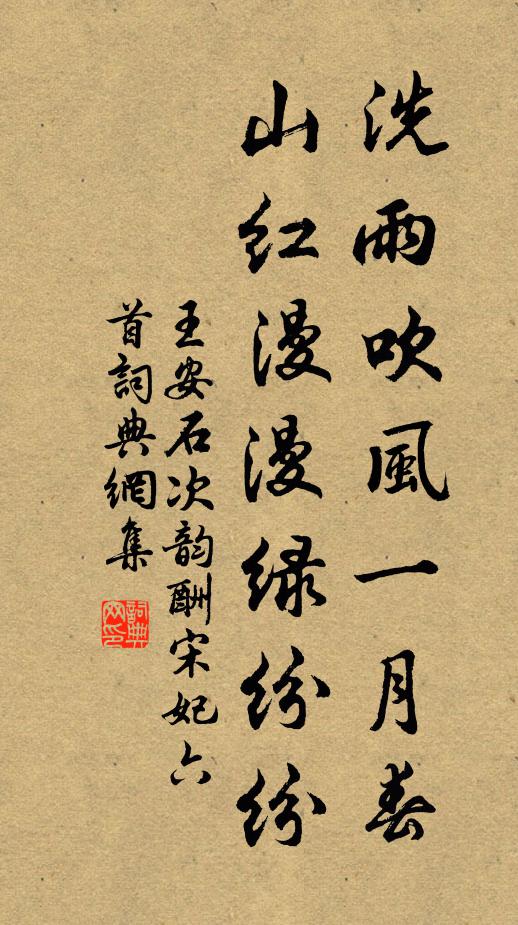 洗雨吹風一月春
山紅漫漫綠紛紛
王安石次韵酬宋妃六
首詞典網集
詞典網印